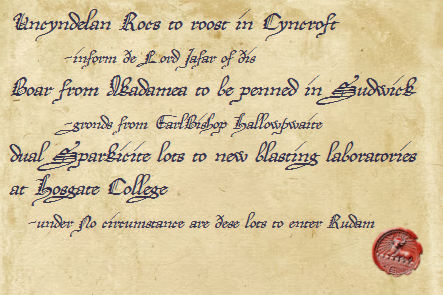 Uncyndelan Rocs to roost in Cyncroft
-inform ðe Lord Jafar of ðis
Boar from Akadamea to be penned in Sudwick
-gronds from EarlBishop Hallowþwaite
dual Sparkicite lots to new blasting laboratories
at Hosgate College
-under No circumstance are ðese lots to enter Rudam